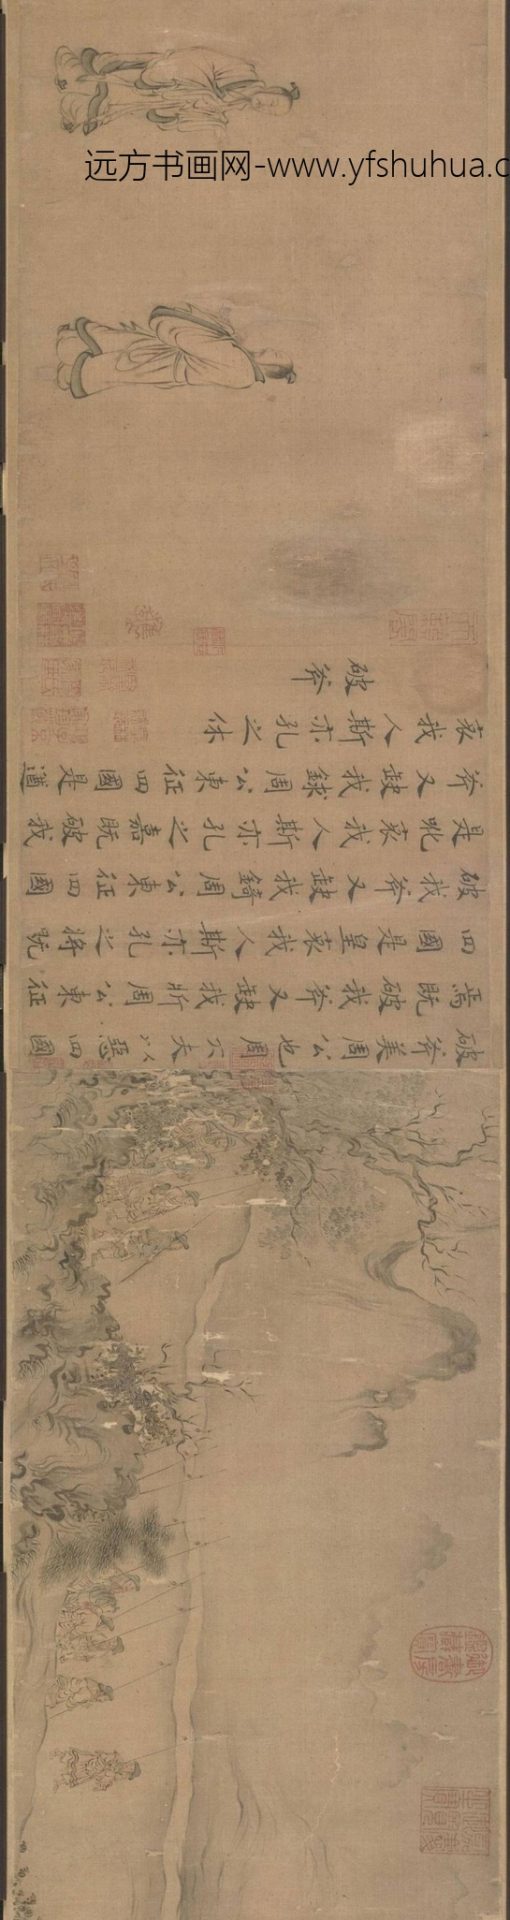 远方书画网-www.yfshuhua.c
破斧美周公也周大夫以惡四國
焉既破我斧又缺我斨周公東征
四國是皇哀我人斯亦孔之將既
破我斧又缺我錡周公東征四國
是吪哀我人斯亦孔之嘉既破我
斧又缺我銶周公東征四國是遒
哀我人斯亦孔之休
破斧
御書房鑑藏寶